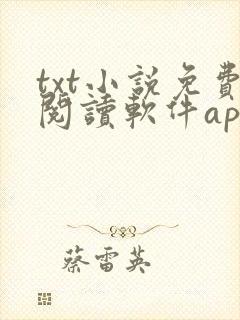 txt小説免費
閱讀軟件ap
蔡雷英